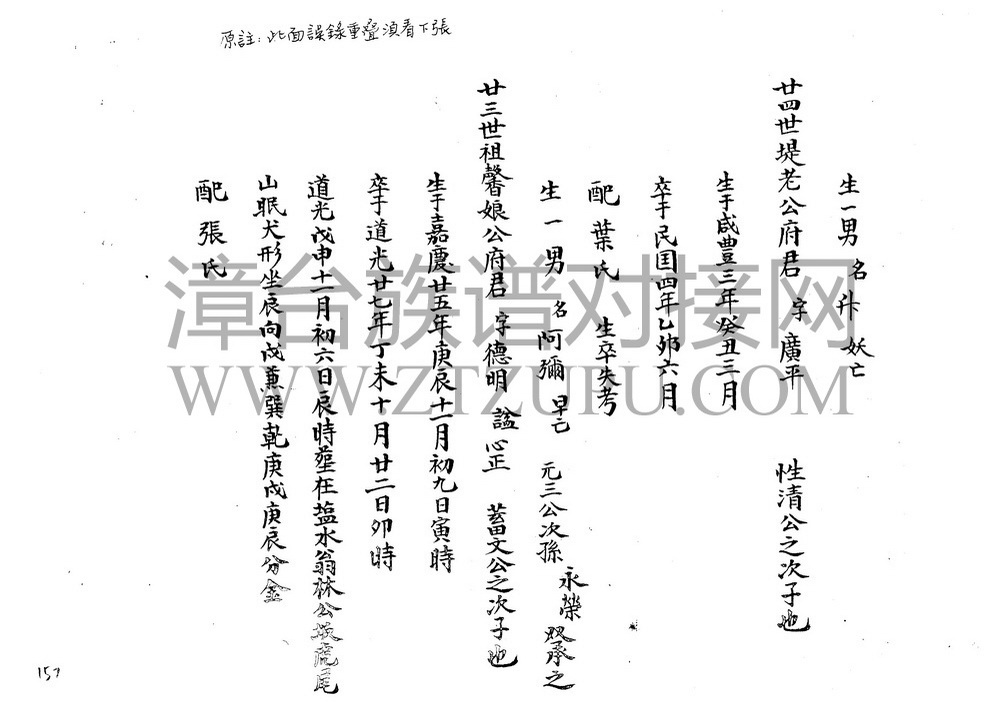 原註：此面誤錄重疊須看下張
生一男 名 妖亡
廿四世堤老公府君 字廣平 性清公之次子也
生于咸豐三年癸丑三月
卒于民国四年乙卯六月
配葉氏 生卒失考
生一男 名阿彌 早亡 元三公次孫永榮双承之
廿三世祖馨娘公府君 字德明 諡心正 蓄文公之次子也
生于嘉慶廿五年庚辰十一月初九日寅時
卒于道光廿七年丁未十月廿二日卯時
道光戊申十一月初六日辰時塟在塩水翁林公坂虎尾
山眠犬形坐辰向戌兼巽乾庚戌庚辰分金
配張氏
漳台族谱对接网
WWW.ZTZUPU.COM
157